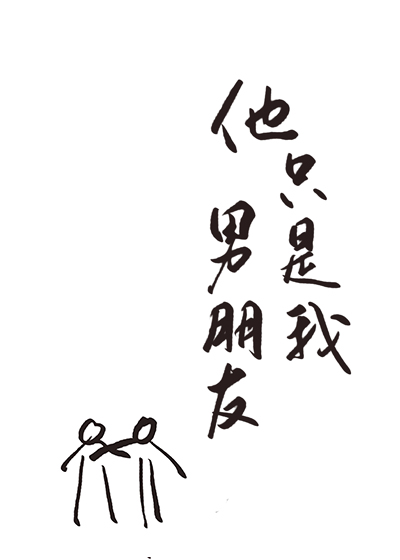 他只是我
男朋友